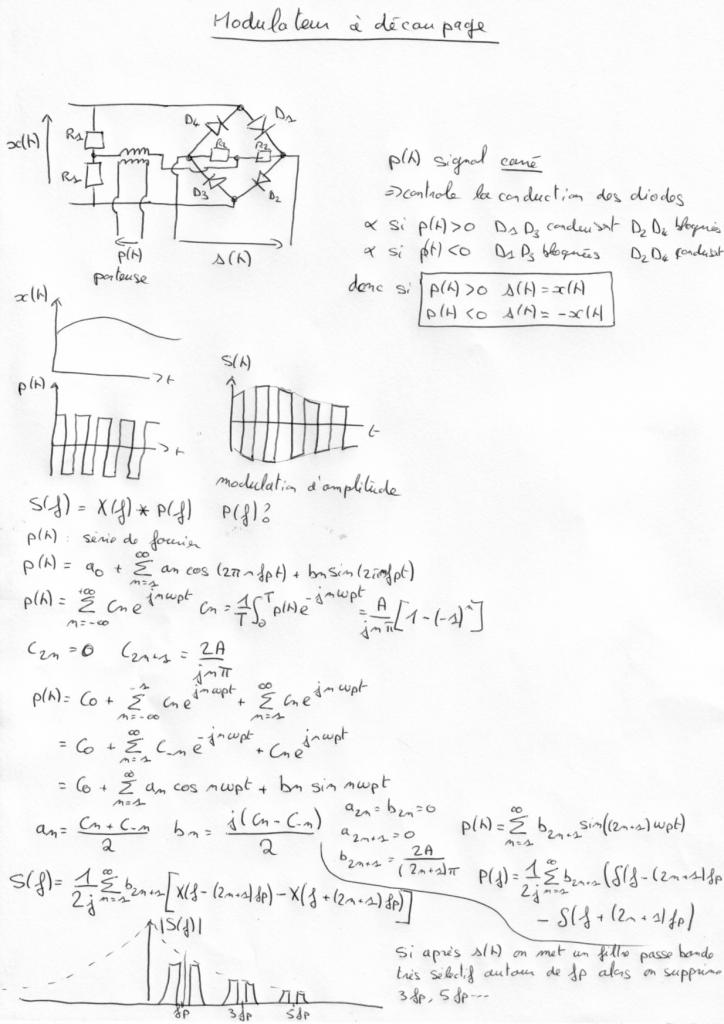 Modulateur à découpage
x(t)
R1
R1
D4
D1
R2
R2
D3
D2
p(t)
porteuse
s(t)
p(t) signal carré
⇒ contrôle la conduction des diodes
∝ si p(t)>0 D1 D3 conduisent D2 D4 bloquées
∝ si p(t)<0 D1 D3 bloquées D2 D4 conduisent
donc si p(t)>0 s(t)=x(t)
p(t)<0 s(t)=-x(t)
x(t)
t
p(t)
t
S(t)
t
modulation d'amplitude
S(f) = X(f) * P(f) P(f)?
p(t) : série de fourier
p(t) = a0 + ∑_{n=1}^{∞} an cos (2πn fpt) + bn sin (2πnfpt)
p(t) = ∑_{n=-∞}^{+∞} Cn e^{jnωpt} Cn = 1/T ∫_0^T p(t) e^{-jnωpt} = A/(jnπ) [1-(-1)^n]
C2n = 0 C2n+1 = 2A/(jnπ)
p(t) = C0 + ∑_{n=-∞}^{-1} Cn e^{jnωpt} + ∑_{n=1}^{∞} Cn e^{jnωpt}
= C0 + ∑_{n=1}^{∞} C-n e^{-jnωpt} + Cn e^{jnωpt}
= C0 + ∑_{n=1}^{∞} an cos nωpt + bn sin nωpt
an = (Cn + C-n)/2 bn = j(Cn - C-n)/2
a2n = b2n = 0
a2n+1 = 0
b2n+1 = 2A/((2n+1)π)
p(t) = ∑_{n=1}^{∞} b2n+1 sin((2n+1)ωpt)
P(f) = 1/2j ∑_{n=1}^{∞} b2n+1 (δ(f-(2n+1)fp
- δ(f+(2n+1)fp)
S(f) = 1/2j ∑_{n=1}^{∞} b2n+1 [X(f-(2n+1)fp) - X(f+(2n+1)fp)]
|S(f)|
fp
3fp
5fp
Si après s(t) on met un filtre passe bande
très sélectif autour de fp alors on supprime
3fp, 5fp...